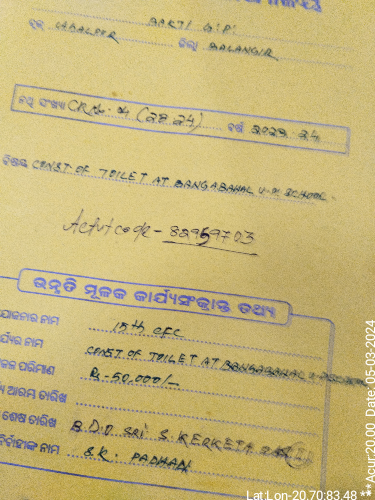 BARTI G.P.
ବ୍ଲକ ... ଜିଲ୍ଲା BALANGIR
ନଥି ସଂଖ୍ୟା CR No. 04 (23-24) ବର୍ଷ 2023-24
ବିଷୟ CONST. OF TOILET AT BANGABAHAL U.P. SCHOOL
Activity code - 82959703
ଉନ୍ନତି ମୂଳକ କାର୍ଯ୍ୟସଂକ୍ରାନ୍ତ ତଥ୍ୟ
ଯୋଜନାର ନାମ 15th CFC
CONST. OF TOILET AT BANGABAHAL
ପରିମାଣ Rs - 50,000/-
ଆରମ୍ଭ ତାରିଖ
ଶେଷ ତାରିଖ B.D.O SRI S. KERKETA
ନାମ S.K. PADHAN
Lat:Lon-20.70:83.48 *** Acur:20.00 Date: 05-03-2024